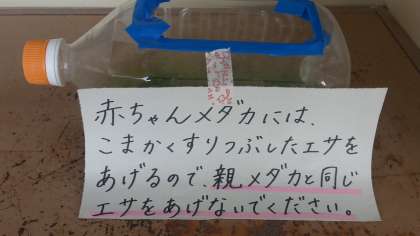 赤ちゃんメダカには、
こまかくすりつぶしたエサを
あげるので、親メダカと同じ
エサをあげないでください。